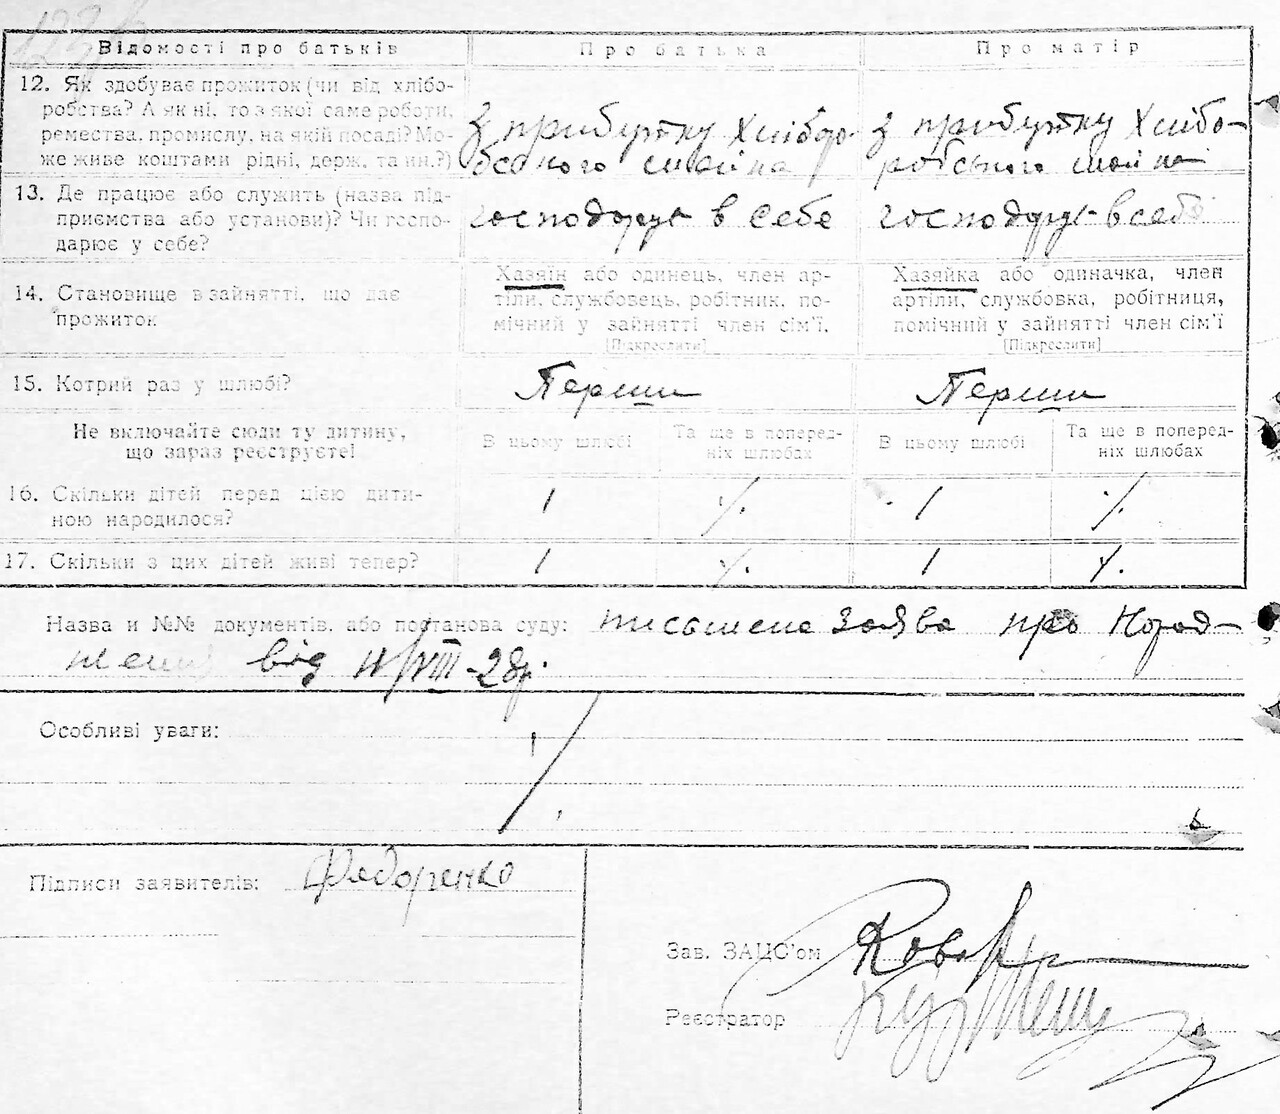 Відомості про батьків Про батька Про матір
12. Як здобуває прожиток (чи від хлібо-
робства? А як ні, то з якої саме роботи,
ремества, промислу, на якій посаді? Мо-
же живе коштами рідні, держ. та ин.?)
з прибутку Хліборо
бського стайна
з прибутку Хлібо-
робського стайна
13. Де працює або служить (назва під-
приємства або установи)? Чи госпо-
дарює у себе?
господарує в себе
господарує в себе
14. Становище в зайнятті, що дає
прожиток
Хазяїн або одинець, член ар-
тіли, службовець, робітник, по-
мічний у зайнятті член сім'ї.
[Підкреслити]
Хазяйка або одиначка, член
артіли, службовка, робітниця,
помічний у зайнятті член сім'ї
[Підкреслити]
15. Котрий раз у шлюбі? Перши Перши
Не включайте сюди ту дитину,
що зараз реєструєте!
В цьому шлюбі
Та ще в поперед-
ніх шлюбах
В цьому шлюбі
Та ще в поперед-
ніх шлюбах
16. Скільки дітей перед цією дити-
ною народилося?
1 ٪ 1 ٪
17. Скільки з цих дітей живі тепер? 1 ٪ 1 ٪
Назва и №№ документів, або постанова суду: письмена заява про Народ-
ження від VIII-28р.
Особливі уваги:
Підписи заявителів: Федоренко
Зав. ЗАЦС'ом
Реєстратор